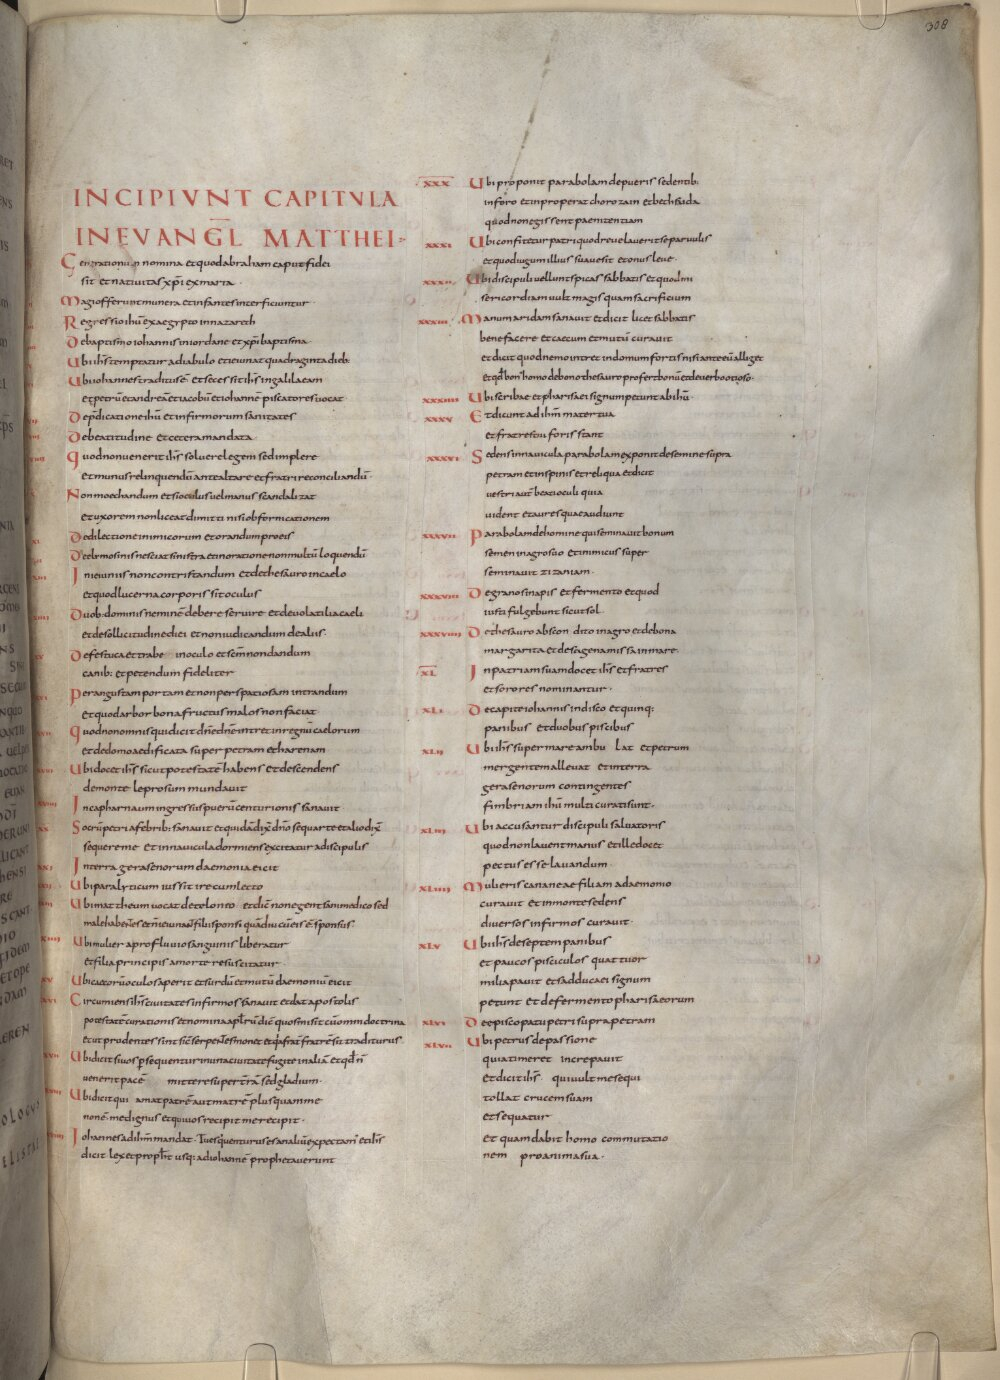 308
INCIPIVNT CAPITVLA
IN EVANGL̅ MATTHEI
Generationum nomina et quod abraham caput fidei
sit et nativitas xp̅i ex maria.
Magi offerunt munera et infantes interficiuntur.
Regressio ih̅u ex aegypto in nazareth
De baptismo iohannis in iordane et xp̅i baptisma.
Ubi ih̅s temptatur a diabulo et ieiunat quadraginta dieb:
Ubi iohannes traditus ē et seces sit ih̅s in galilaeam
et petrū et andreā et iacobū et iohannē piscatores vocat
De p̅dicatione ih̅u et infirmorum sanitates
De beatitudine et cetera mandata.
quod non venerit ih̅s solvere legem sed implere
et munus relinquendū ante altare et fratri reconciliandū.
Non moechandum et si oculus vel manus scandalizat
et uxorem non liceat dimitti nisi ob fornicationem
De dilectione inimicorum et orandum pro eis
De elemosinis nesciat sinistra et in oratione non multū loquendū
In ieiuniis non contristandum et de thesauro in caelo
et quod lucerna corporis sit oculus
Duob: dominis neminē debere servire et de volatilia caeli
et de sollicitudine diei et non iudicandum de aliis.
De festuca et trabe in oculo et sc̅m non dandum
canib: et petendum fideliter
Per angustam portam et non per spatiosam intrandum
et quod arbor bona fructus malos non faciat
quod non omnis qui dicit dn̅e dn̅e intret in regnū caelorum
et de domo aedificata super petram et harenam
Ubi docet ih̅s sicut potestatē habens et descendens
de monte leprosum mundavit
In capharnaum ingressus puerū centurionis sanavit
Socrū petri a febrib: sanavit et quidā dix̅ dn̅o sequar te et alio dix̅
sequere me et in navicula dormiens excitatur a discipulis
In terra gerasenorum daemonia eicit
Ubi paralyticum iussit ire cum lecto
Ubi mattheum vocat de teloneo et dic̅ non egent sani medico sed
male habentes et nē ieiunant filii sponsi quādiu cū eis ē sponsus.
Ubi mulier a profluvio sanguinis liberatur
et filia principis a morte resuscitatur.
Ubi caecorū oculos aperit et surdū et mutū daemoniū eicit
Circumiens ih̅s civitates infirmos sanavit et dat apostolis
potestatē curationis et nomina apl̅orū dic̅ quos misit cū omni doctrina
et ut prudentes sint sic̅ serpentes monet et qd̅ a fratre frater sit traditurus.
Ubi dicit si vos persequentur in una civitate fugite in aliā et qd̅ n̅
venerit pacē mittere super terrā sed gladium.
Ubi dicit qui amat patrē aut matrē plus quam me
non ē me dignus et qui vos recipit me recipit.
Iohannes ad ih̅m mandat. Tu es qui venturus es an aliū expectam̅ et ih̅s
dicit lex et proph̅ usq: ad iohannē prophetaverunt
XXX Ubi proponit parabolam de pueris sedentib:
in foro et inproperat chorozain et bethsaida
quod non egissent paenitentiam
XXXI Ubi confitetur patri quod revelaverit se parvulis
et quod iugum illius suave sit et onus leve.
XXXII Ubi discipuli vellunt spicas sabbatis et quod mi
sericordiam vult magis quam sacrificium
XXXIII Manum aridam sanavit et dicit licet sabbatis
bene facere et caecum et mutū curavit
et dicit quod nemo intret in domum fortis nisi ante eū alliget
et qd̅ bon: homo de bono thesauro profert bonū et de verbo otioso.
XXXIIII Ubi scribae et pharisaei signum petunt ab ih̅u.
XXXV Et dicunt ad ih̅m mater tua
et fratres tui foris stant
XXXVI Sedens in navicula parabolam exponit de semine supra
petram et in spinis et reliqua et dicit
vestri aut̅ beati oculi quia
vident et aures quae audiunt
XXXVII Parabolam de homine qui seminavit bonum
semen in agro suo et inimicus super
seminavit zizaniam.
XXXVIII De grano sinapis et fermento et quod
iusti fulgebunt sicut sol.
XXXVIIII De thesauro abscondito in agro et de bona
margarita et de sagena missa in mare.
XL In patriam suam docet ih̅s et fratres
et sorores nominantur.
XLI De capite iohannis in disco et quinq:
panibus et duobus piscibus
XLII Ubi ih̅s super mare ambulat et petrum
mergentem allevat et in terra
gerasenorum contingentes
fimbriam ih̅u multi curati sunt.
XLIII Ubi accusantur discipuli salvatoris
quod non lavent manus et ille docet
pectus esse lavandum.
XLIIII Mulieris cananeae filiam a daemonio
curavit et in monte sedens
diversos infirmos curavit.
XLV Ubi ih̅s de septem panibus
et paucos pisciculos quattuor
milia pavit et sadducaei signum
petunt et de fermento pharisaeorum
XLVI De episcopatu petri supra petram
XLVII Ubi petrus de passione
quia timeret increpavit
et dicit ih̅s qui vult me sequi
tollat crucem suam
et sequatur
et quam dabit homo commutatio
nem pro anima sua.